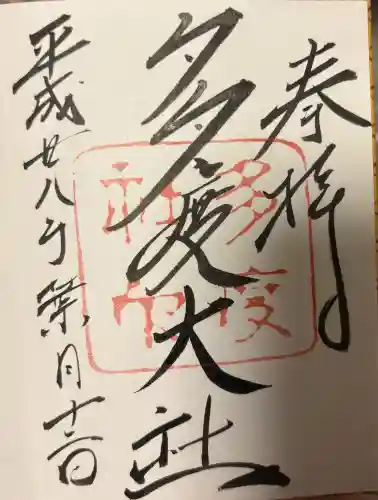 奉拝
多度大社
平成廿八年葉月十三日
多度
社印